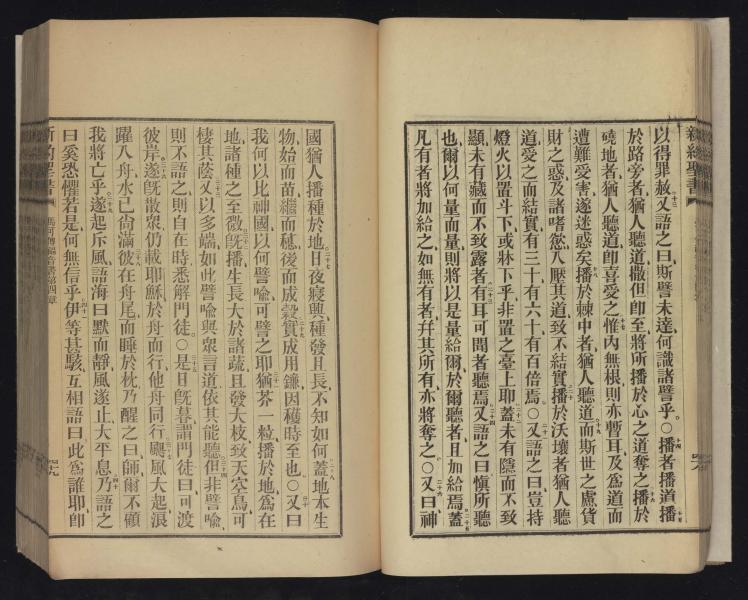 新約聖書
以得罪赦十三又語之曰斯譬未達何識諸譬乎○十四播者播道十五播
於路旁者猶人聽道撒但卽至將所播於心之道奪之十六播於
磽地者猶人聽道卽喜愛之十七惟內無根則亦暫耳及爲道而
遭難受害遂迷惑矣十八播於棘中者猶人聽道十九而斯世之慮貨
財之惑及諸嗜慾入厭其道致不結實二十播於沃壤者猶人聽
道受之而結實有三十有六十有百倍焉○二十一又語之曰豈持
燈火以置斗下或牀下乎非置之臺上耶二十二蓋未有隱而不致
顯未有藏而不致露者二十三有耳可聞者聽焉二十四又語之曰愼所聽
也爾以何量而量則將以是量給爾於爾聽者且加給焉二十五蓋
凡有者將加給之如無有者幷其所有亦將奪之○二十六又曰神
國猶人播種於地二十七日夜寢興種發且長不知如何二十八蓋地本生
物始而苗繼而穗後而成穀二十九實成用鐮因穫時至也○三十又曰
我何以比神國以何譬喩可譬之耶三十一猶芥一粒播於地爲在
地諸種之至微三十二旣播生長大於諸蔬且發大枝致天空鳥可
棲其蔭三十三又以多端如此譬喩與衆言道依其能聽三十四但非譬喩
則不語之則自在時悉解門徒○三十五是日旣暮謂門徒曰可渡
彼岸三十六遂旣散衆仍載耶穌於舟而行他舟同行三十七颶風大起浪
躍入舟水已尙滿三十八彼在舟尾而睡於枕乃醒之曰師爾不顧
我將亡乎三十九遂起斥風語海曰默而靜風遂止大平息四十乃語之
曰奚恐懼若是何無信乎四十一伊等甚駭互相語曰此爲誰耶卽
新約聖書 馬可傳福音書第四章 四十九